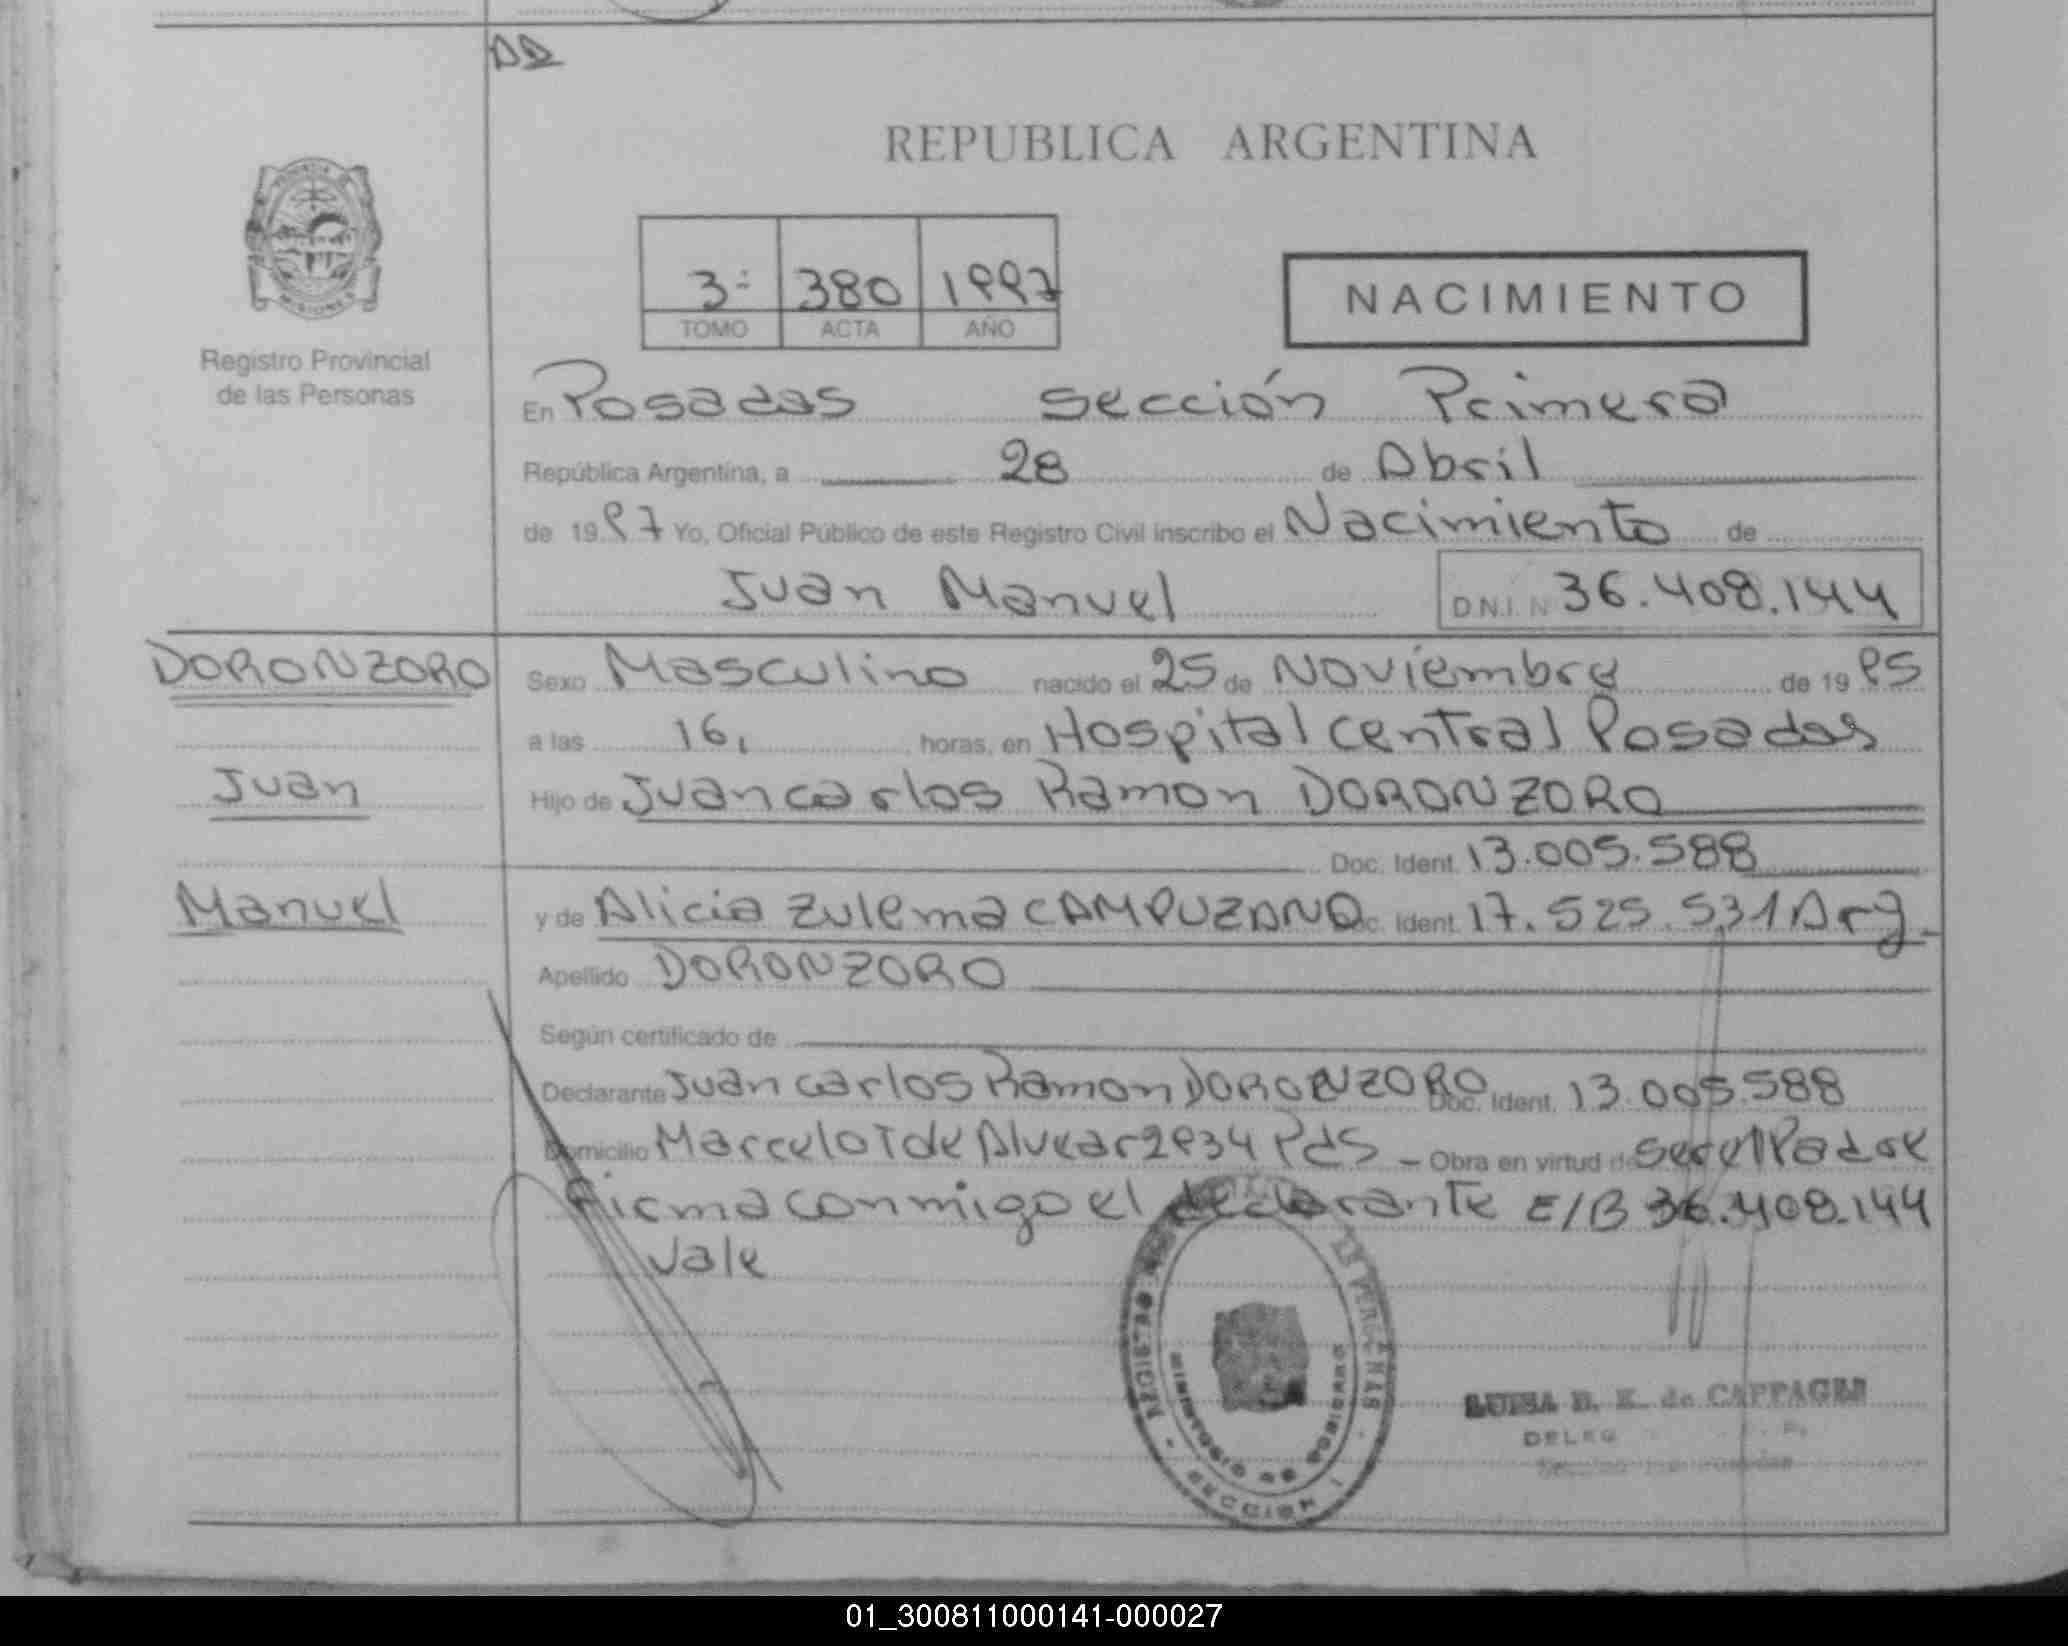 DD
REPUBLICA ARGENTINA
3º 380 1997
TOMO ACTA AÑO
NACIMIENTO
MISIONES
Registro Provincial
de las Personas
En Posadas sección Primera
República Argentina, a 28 de Abril
de 1997 Yo, Oficial Público de este Registro Civil inscribo el Nacimiento de
Juan Manuel D.N.I. N 36.408.144
DORONZORO
Juan
Manuel
Sexo Masculino nacido el 25 de Noviembre de 1995
a las 16, horas, en Hospital central Posadas
Hijo de Juan carlos Ramon DORONZORO
Doc. Ident. 13.005.588
y de Alicia Zulema CAMPUZANO Doc. Ident. 17.525.531 Arg
Apellido DORONZORO
Según certificado de
Declarante Juan carlos Ramon DORONZORO Doc. Ident. 13.005.588
Domicilio Marcelo T de Alvear 2934 Pds - Obra en virtud de ser el Padre
firma conmigo el declarante E/B 36.408.144
Vale
REGISTRO LAS PERSONAS
MINISTERIO DE GOBIERNO
SECCION 1
LUISA B. K. de
DELEG
01_300811000141-000027